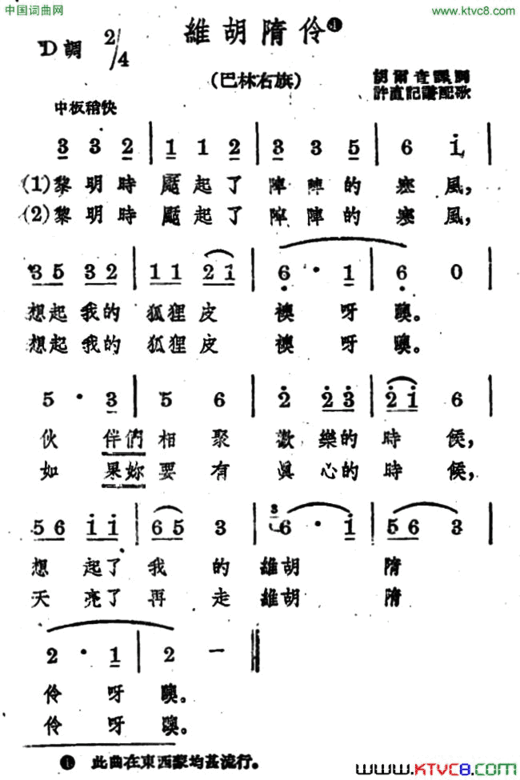 中国词曲网
www.ktvc8.com
維胡隋伶❶
D調 2/4
(巴林右旗)
胡爾奇 演唱
許直記譜配歌
中板稍快
3 3 2 | 1 1 2 | 3 3 5 | 6 i |
(1)黎明時颳起了陣陣的寒風,
(2)黎明時颳起了陣陣的寒風,
35 32 | 11 21 | 6 · 1 | 6 0
想起我的狐狸皮襖呀噢。
想起我的狐狸皮襖呀噢。
5 · 3 | 5 6 | 2 23 | 21 6
伙伴們相聚歡樂的時候,
如果妳要有眞心的時候,
56 11 | 65 3 | 3 6 · 1 | 56 3
想起了我的維胡隋
天亮了再走維胡隋
2 · 1 | 2 —
伶呀噢。
伶呀噢。
❶ 此曲在東西蒙均甚流行。
www.KTVC8.com